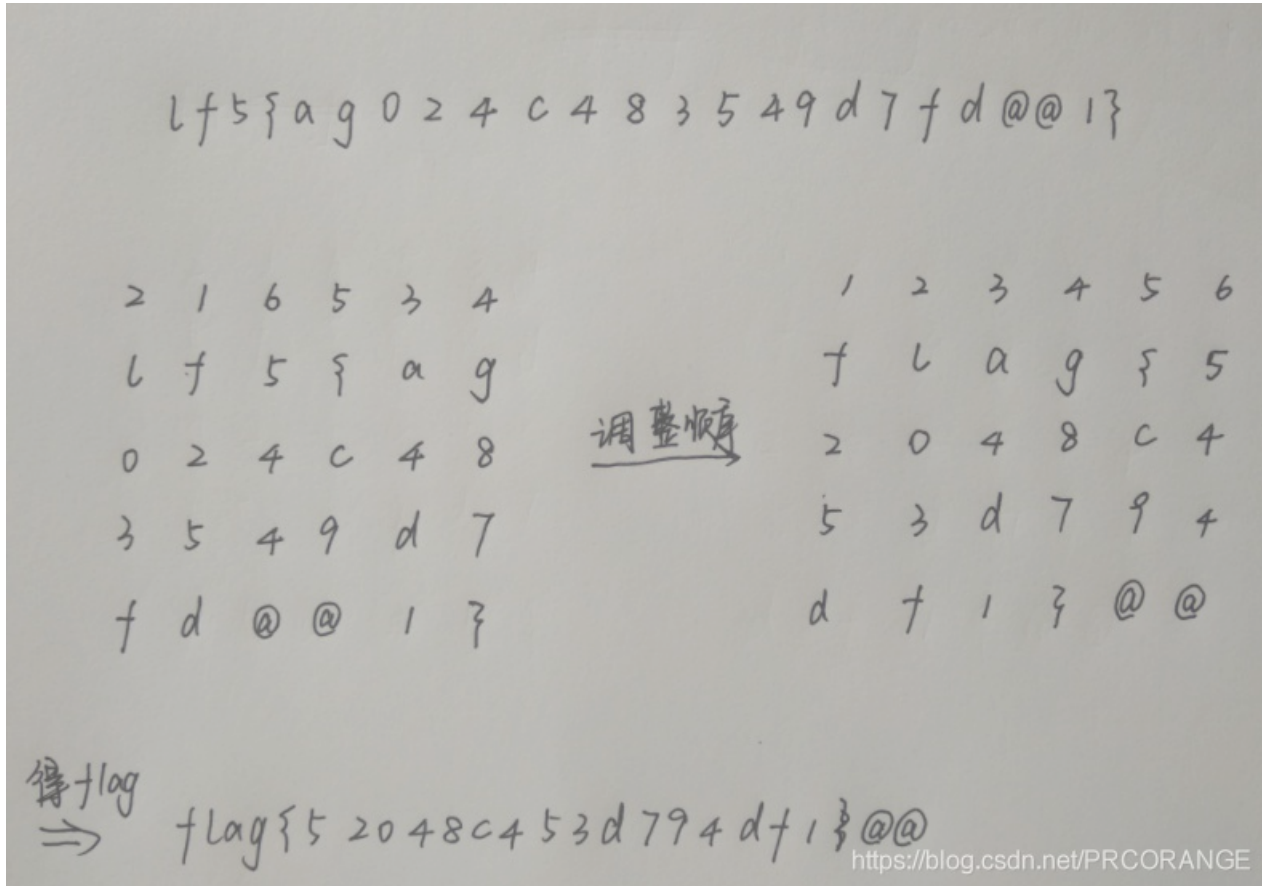 lf5{ag024c483549d7fd@@1}
2 1 6 5 3 4
l f 5 { a g
0 2 4 c 4 8
3 5 4 9 d 7
f d @ @ 1 }
调整顺序
1 2 3 4 5 6
f l a g { 5
2 0 4 8 c 4
5 3 d 7 9 4
d f 1 } @ @
得flag
⇒ flag{52048c453d794df1}@@
https://blog.csdn.net/PRCORANGE